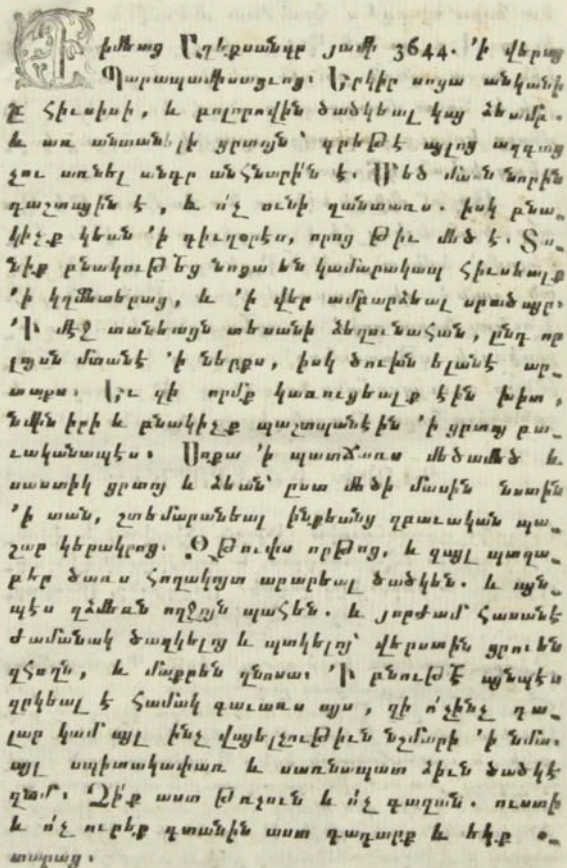 Դիմեաց Աղեքսանդր յամի 3644. ՚ի վերայ
Պարապամիսադաց։ Երկիր սոցա անկանի
ը հիւսիսի, և բոլորովին ծածկեալ կայ ձեամբ.
և առ անտանելի ցրտոյն՝ գրեթէ այլոց ազգաց
չու առնել անդր անհնարին է. Մեծ մասն նորին
դաշտային է, և ո՛չ ունի զանտառս. իսկ բնա֊
կիչք կեան ՚ի գիւղօրէս, որոց թիւ մեծ է. Տա֊
նիք բնակութեց նոցա են կամարակապ հիւսեալք
՚ի կղմնտերաց, և ՚ի վեր ամբարձեալ սրածայր։
՚Ի մէջ տանեացն տեսանի ձեղունահան, ընդ որ
լոյսն մտանէ ՚ի ներքս, իսկ ծուխն ելանէ ար֊
տաքս. Եւ զի որմք կառուցեալք էին խիտ,
նմին իրի և բնակիչք պաշտպանէին ՚ի ցրտոյ բա֊
ւականապէս։ Սոքա ՚ի պատճառս մեծամեծ և
սաստիկ ցրտոյ և ձեան՝ ըստ մեծի մասին նստին
՚ի տան, շտեմարանեալ ինքեանց զբաւական պա֊
շար կերակրոց. Զթուփս որթոց, և զայլ պտղա֊
բեր ծառս հողակոյտ արարեալ ծածկեն. և այն֊
պէս զձմեռն ողջոյն պահեն. և յորժամ հասանէ
ժամանակ ծաղկելոյ և պտկելոյ՝ վերստին ցրուեն
զհողն, և մաքրեն զնոսա։ ՚Ի բնութէ այնպէս
զրկեալ է համակ գաւառս այս, զի ո՛չինչ դա֊
լար կամ այլ ինչ վայելչութիւն նշմարի ՚ի նմա.
այլ սպիտակափառ և սառնապատ ձիւն ծածկէ
զնա. Չի՛ք աստ թռչուն և ո՛չ գազան. ուստի
և ո՛չ ուրեք գտանին աստ գադարք և հետք օ֊
տարաց։